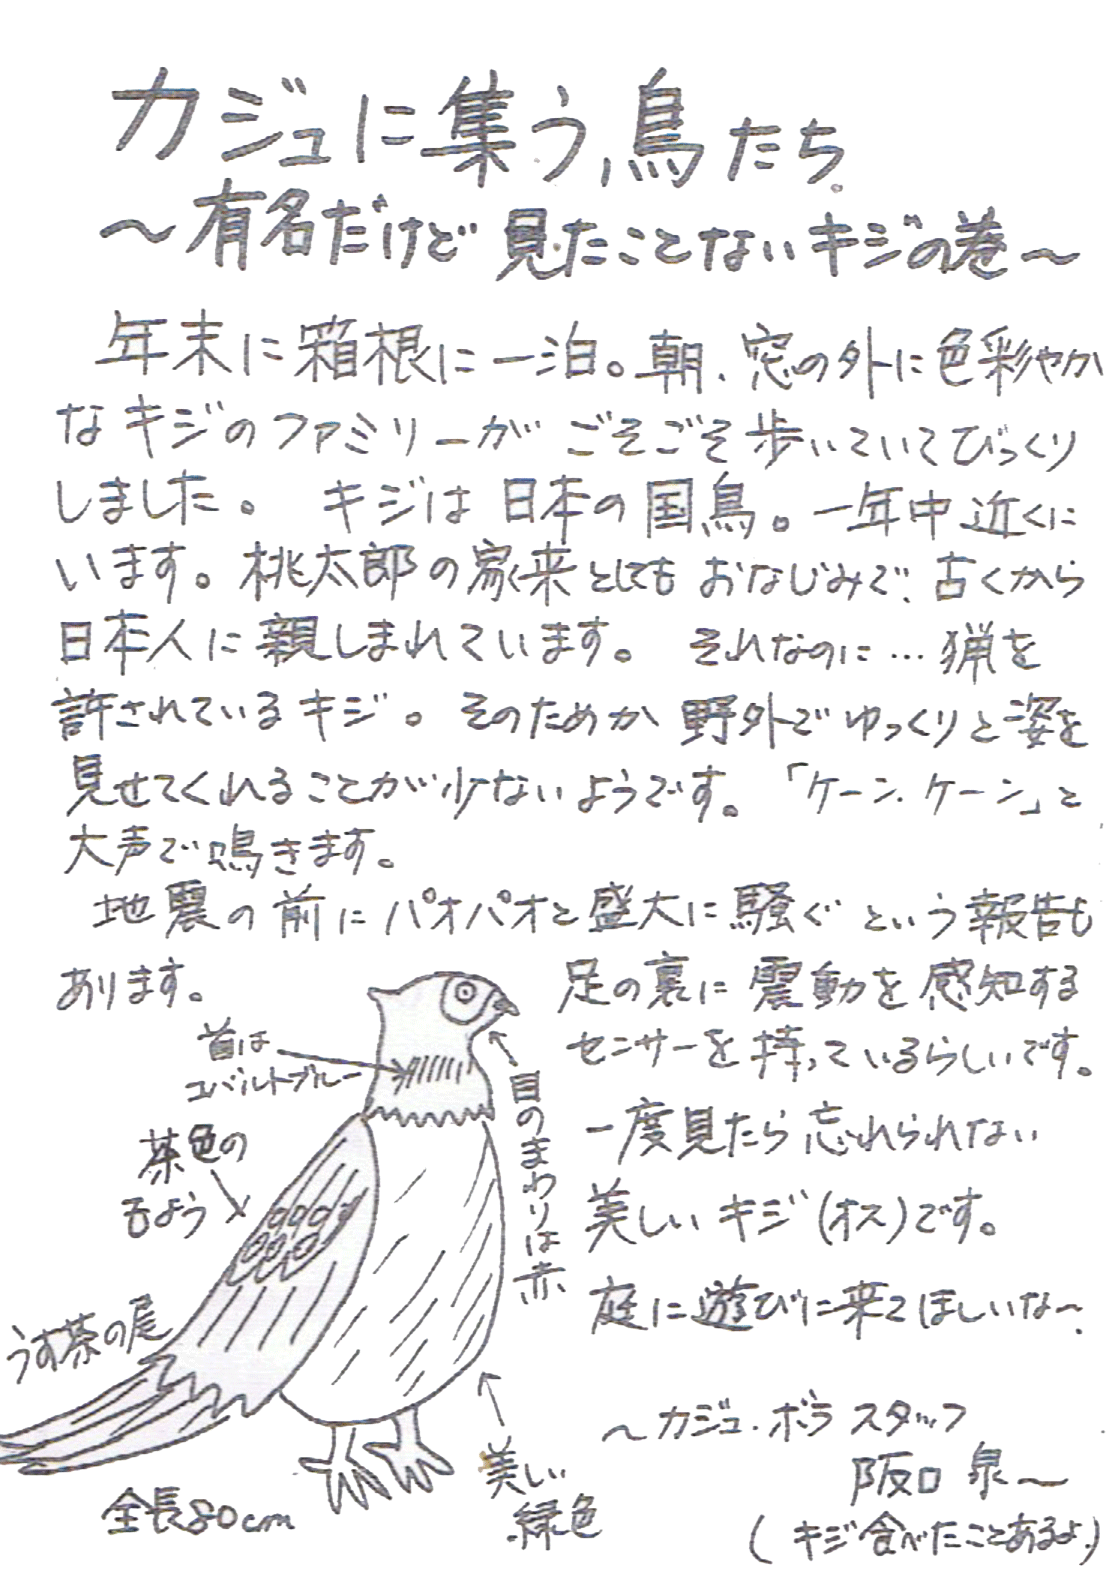 カジュに集う鳥たち
〜有名だけど見たことないキジの巻〜
年末に箱根に一泊。朝、窓の外に色彩やか
なキジのファミリーがごそごそ歩いていてびっくり
しました。キジは日本の国鳥。一年中近くに
います。桃太郎の家来としてもおなじみで、古くから
日本人に親しまれています。それなのに…猟を
許されているキジ。そのためか野外でゆっくりと姿を
見せてくれることが少ないようです。「ケーン、ケーン」と
大声で鳴きます。
地震の前にパオパオと盛大に騒ぐという報告も
あります。
足の裏に震動を感知する
センサーを持っているらしいです。
一度見たら忘れられない
美しいキジ(オス)です。
庭に遊びに来てほしいな〜、
〜カジュ・ボラスタッフ
阪口 泉〜
(キジ食べたことあるよ)
首は
コバルトブルー
目のまわりは赤
茶色の
もよう
うす茶の尾
美しい
緑色
全長80cm